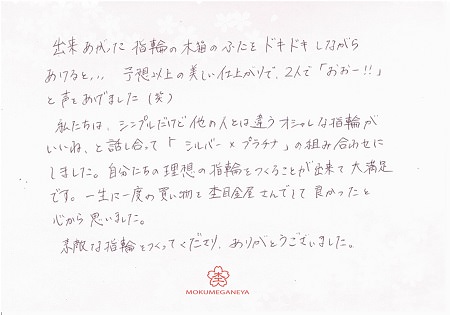 出来あがった指輪の木箱のふたをドキドキしながら
あけると,,, 予想以上の美しい仕上がりで、2人で「おおー!!」
と声をあげました(笑)
私たちは、シンプルだけど他の人とは違うオシャレな指輪が
いいね、と話し合って「シルバー×プラチナ」の組み合わせに
しました。自分たちの理想の指輪をつくることが出来て大満足
です。一生に一度の買い物を杢目金屋さんでして良かったと
心から思いました。
素敵な指輪をつくってくださり、ありがとうございました。
MOKUMEGANEYA